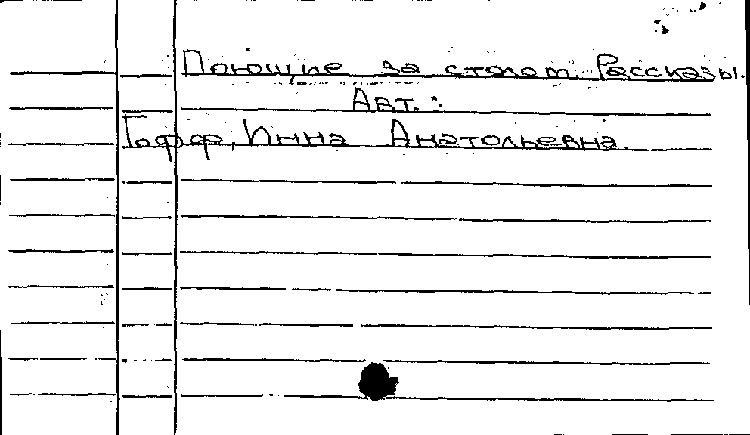 Поющие за столом. Рассказы.
Авт.:
Гофф, Инна Анатольевна.